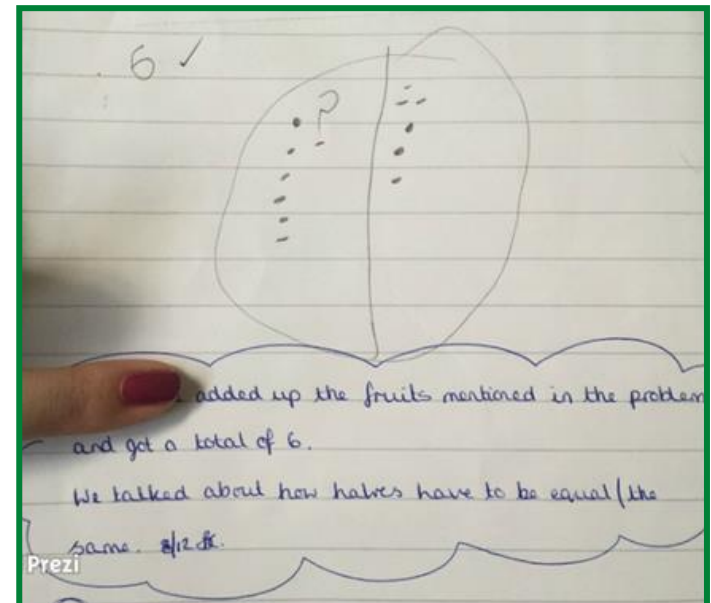 6 ✓
?
added up the fruits mentioned in the problem
and got a total of 6.
We talked about how halves have to be equal (the
same.
Prezi